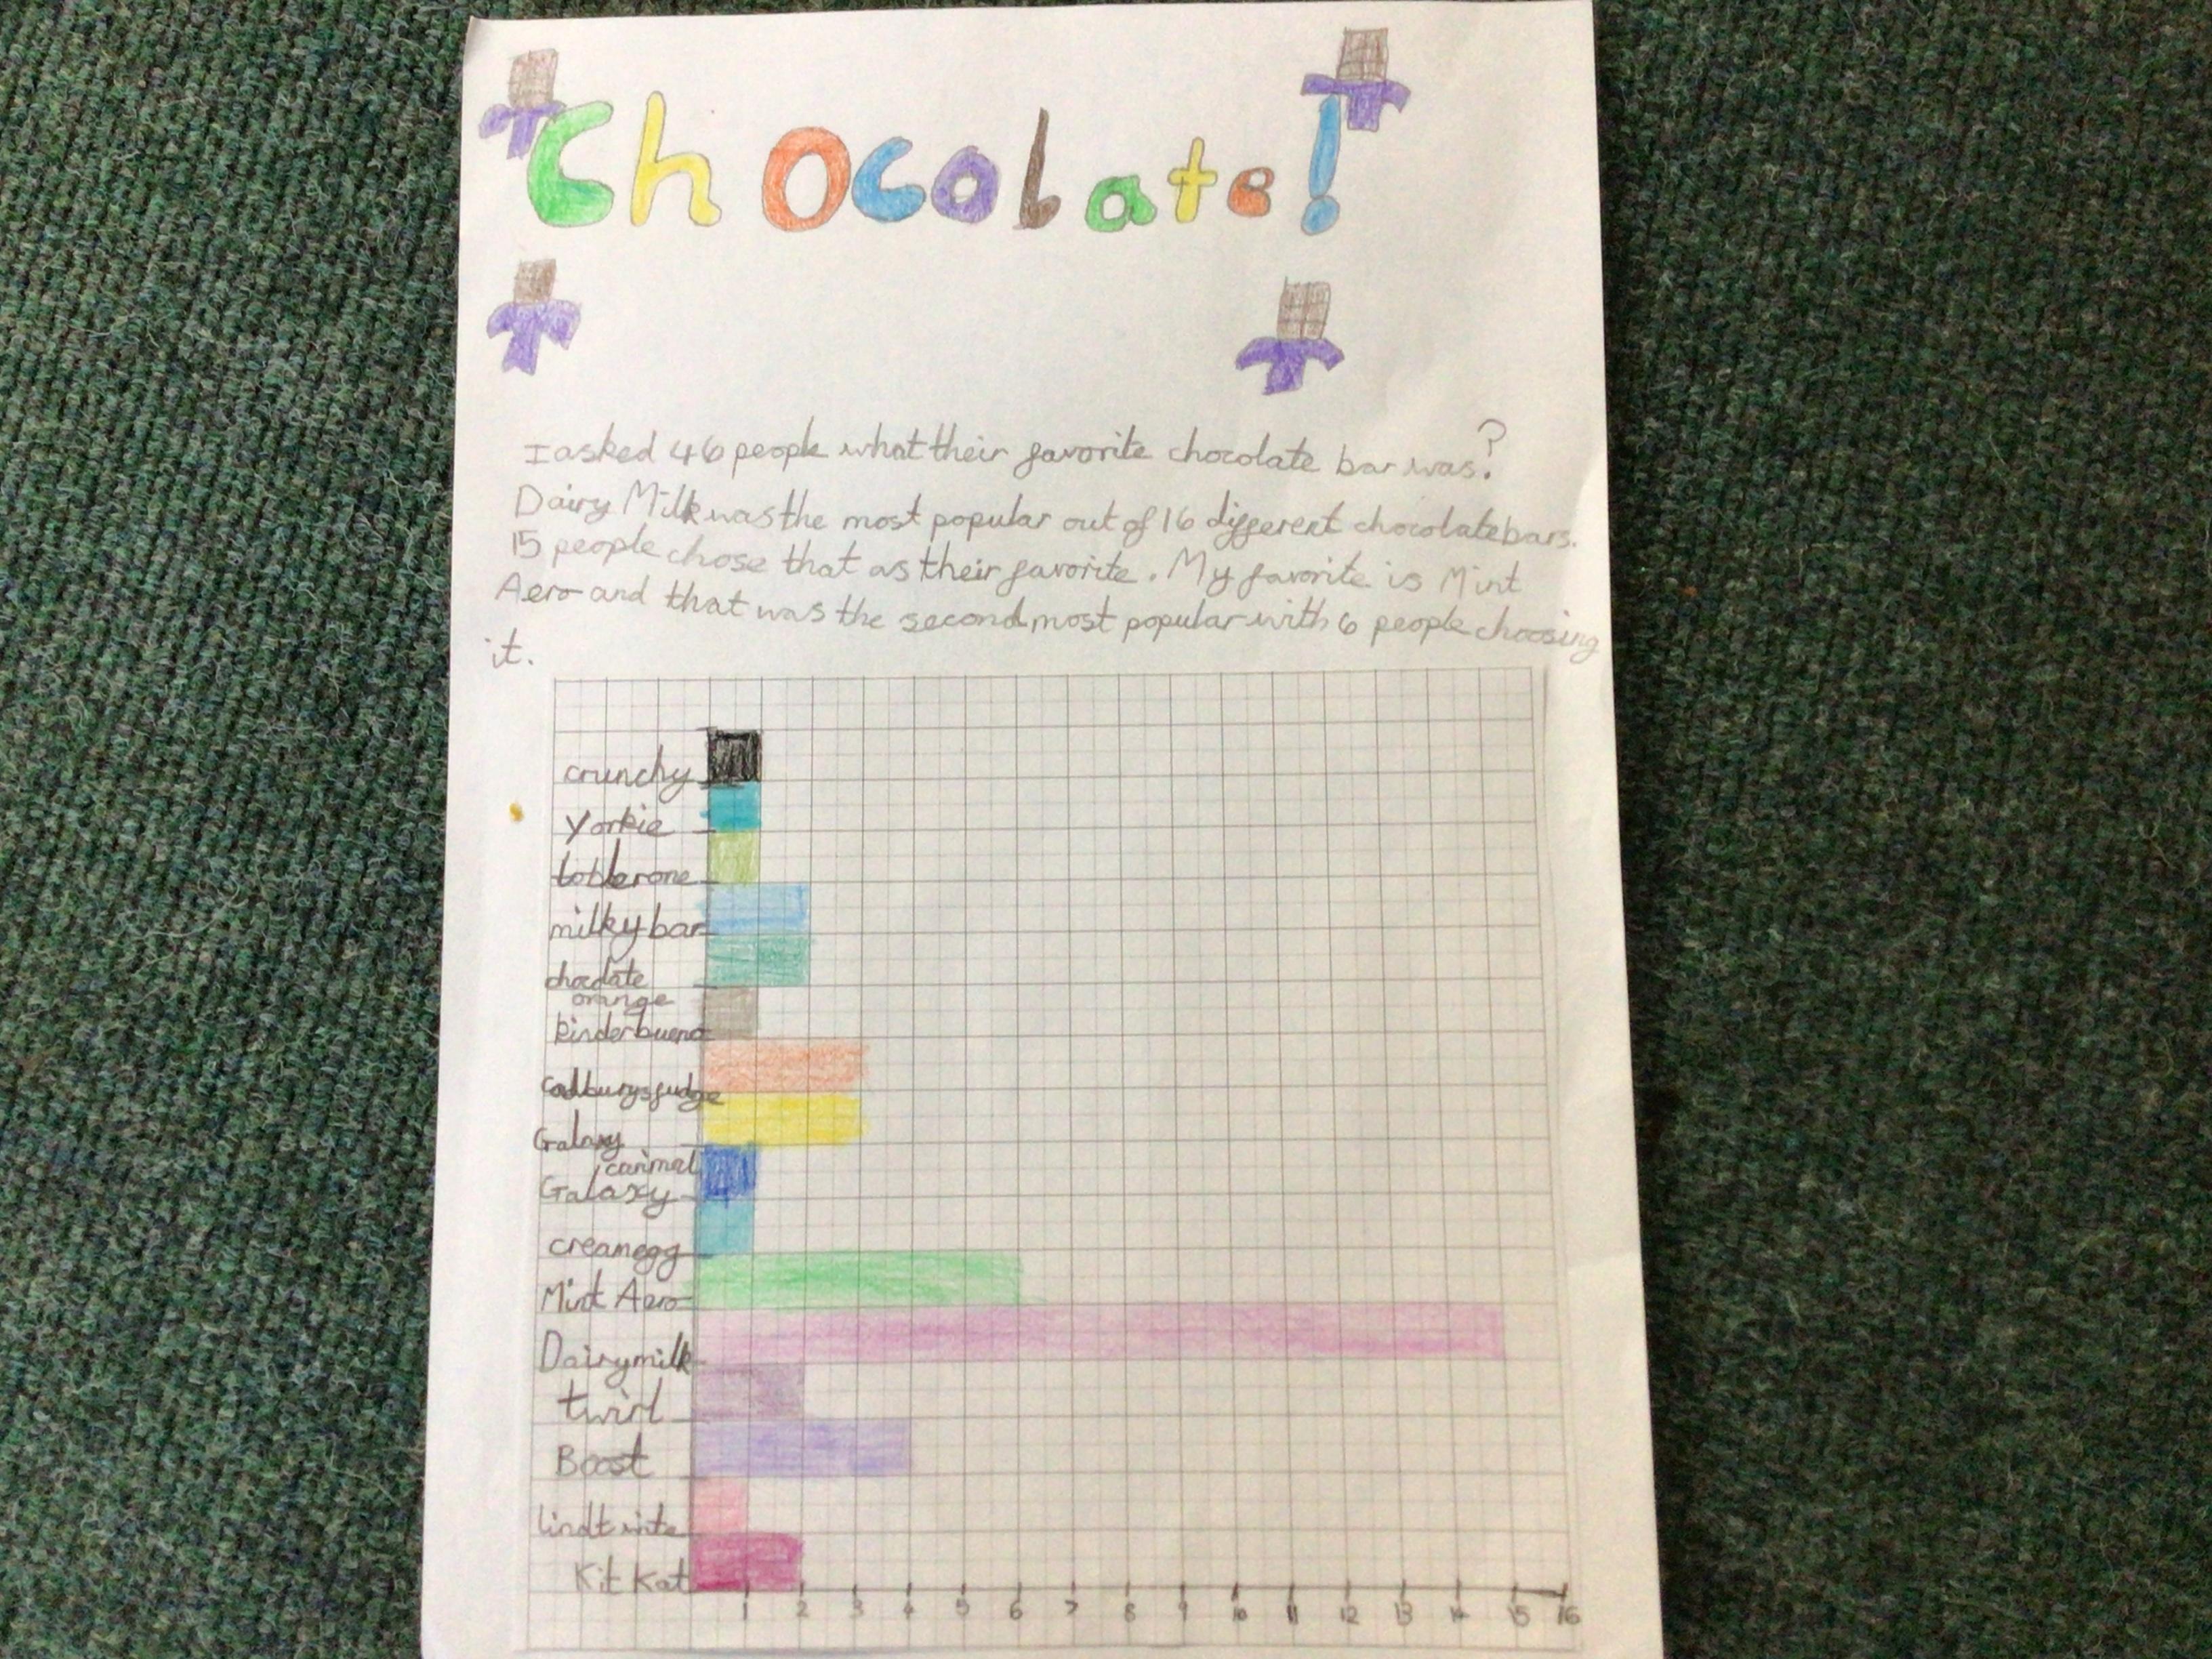 Chocolate!
I asked 46 people what their favorite chocolate bar was?
Dairy Milk was the most popular out of 16 different chocolate bars.
15 people chose that as their favorite. My favorite is Mint
Aero and that was the second most popular with 6 people choosing
it.
crunchy
Yorkie
toblerone
milky bar
chocolate
orange
kinderbueno
Cadburys fudge
Galaxy
carimal
Galaxy
creamegg
Mint Aero
Dairymilk
twirl
Boost
lindt
Kit Kat
1 2 3 4 5 6 7 8 9 10 11 12 13 14 15 16